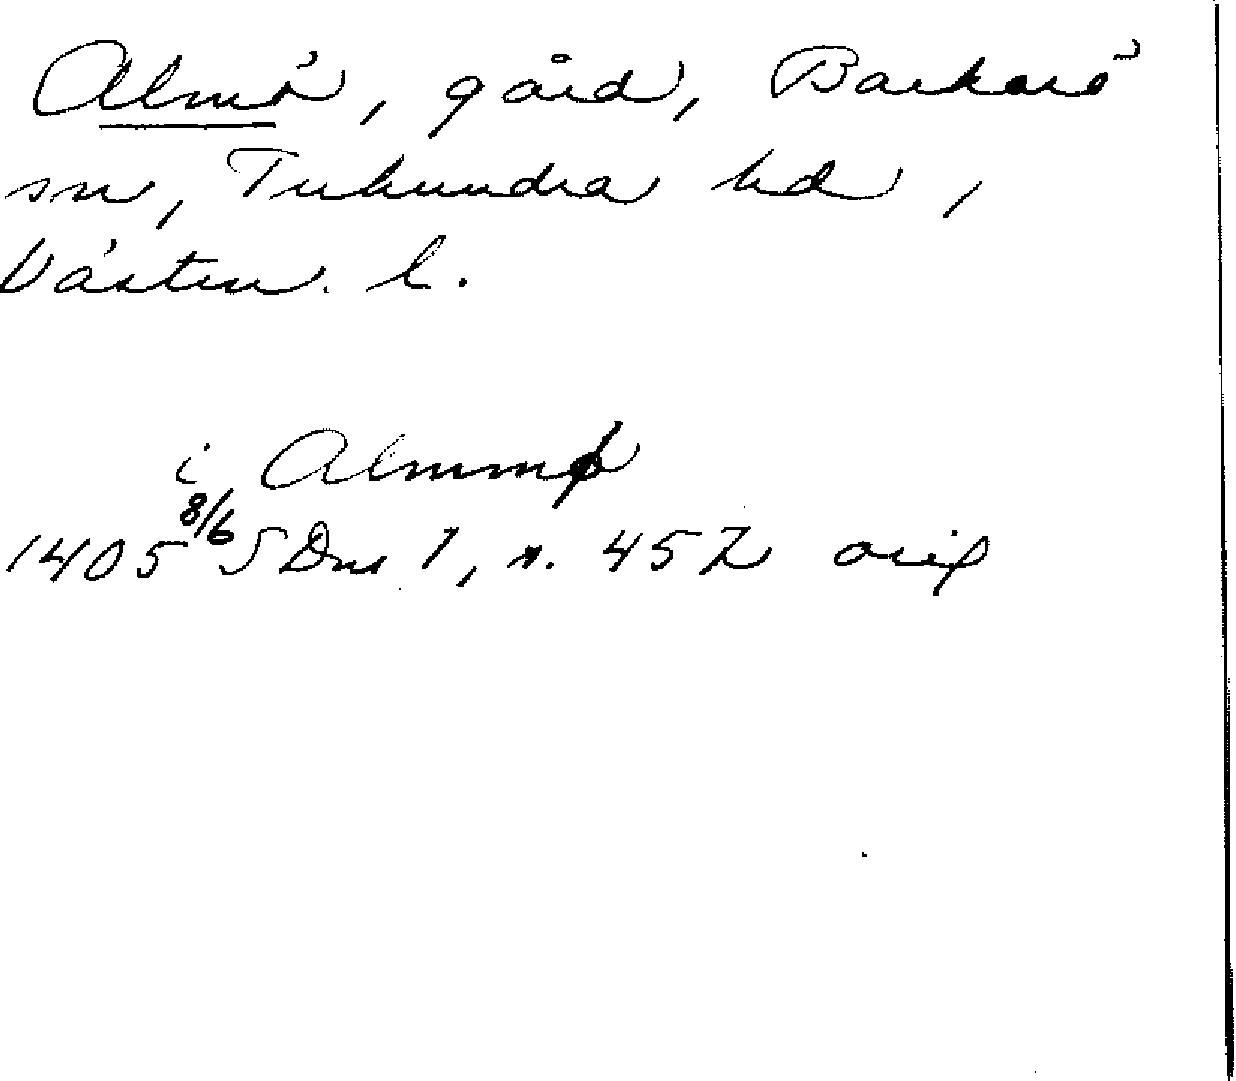 Almö, gård, Barkarö
sn, Tuhundra hd,
Västm. l.
i Almmø
1405 8/6 SDns 1, n. 452 orig